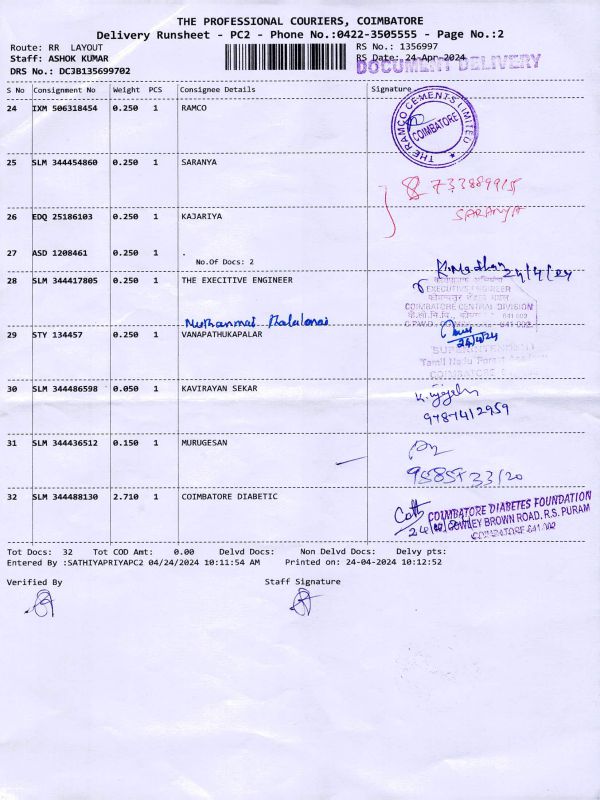 THE PROFESSIONAL COURIERS, COIMBATORE
Delivery Runsheet - PC2 - Phone No.:0422-3505555 - Page No.:2
Route: RR LAYOUT
RS No.: 1356997
Staff: ASHOK KUMAR
RS Date: 24-Apr-2024
DOCUMENT DELIVERY
DRS No.: DCJB135699702
S No Consignment No Weight PCS Consignee Details Signature
24 IXM 506318454 0.250 1 RAMCO
THE RAMCO CEMENTS LIMITED
COIMBATORE
25 SLM 344454860 0.250 1 SARANYA
SARANYA
26 EDQ 25186103 0.250 1 KAJARIYA
27 ASD 1208461 0.250 1 .
No.Of Docs: 2
24/4/24
28 SLM 344417805 0.250 1 THE EXECITIVE ENGINEER
EXECUTIVE ENGINEER
COIMBATORE CENTRAL DIVISION
29 STY 134457 0.250 1 VANAPATHUKAPALAR
24/4/24
SUPERINTENDENT
Tamil Nadu Forest Academy
COIMBATORE
30 SLM 344486598 0.050 1 KAVIRAYAN SEKAR
9787412959
31 SLM 344436512 0.150 1 MURUGESAN
32 SLM 344488130 2.710 1 COIMBATORE DIABETIC
COIMBATORE DIABETES FOUNDATION
COWLEY BROWN ROAD, R.S. PURAM
COIMBATORE-641 002
Tot Docs: 32 Tot COD Amt: 0.00 Delvd Docs: Non Delvd Docs: Delvy pts:
Entered By :SATHIYAPRIYAPC2 04/24/2024 10:11:54 AM Printed on: 24-04-2024 10:12:52
Verified By Staff Signature